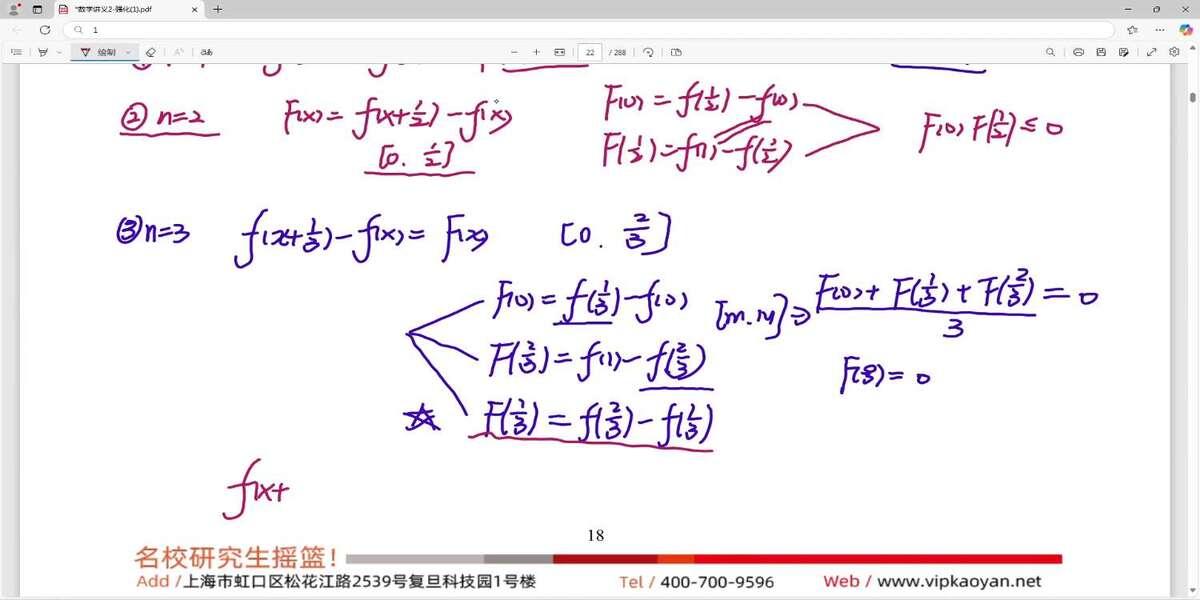 *数学讲义2-强化(1).pdf
1
绘制
22 / 288
② n=2 F(x)=f(x+1/2)-f(x) F(0)=f(1/2)-f(0)
[0. 1/2] F(1/2)=f(1)-f(1/2) F(0)F(1/2)≤0
③ n=3 f(x+1/3)-f(x)=F(x) [0. 2/3]
F(0)=f(1/3)-f(0) [m.M]⇒ (F(0)+F(1/3)+F(2/3))/3=0
F(2/3)=f(1)-f(2/3) F(ξ)=0
☆ F(1/3)=f(2/3)-f(1/3)
f(x+
18
名校研究生摇篮!
Add / 上海市虹口区松花江路2539号复旦科技园1号楼 Tel / 400-700-9596 Web / www.vipkaoyan.net